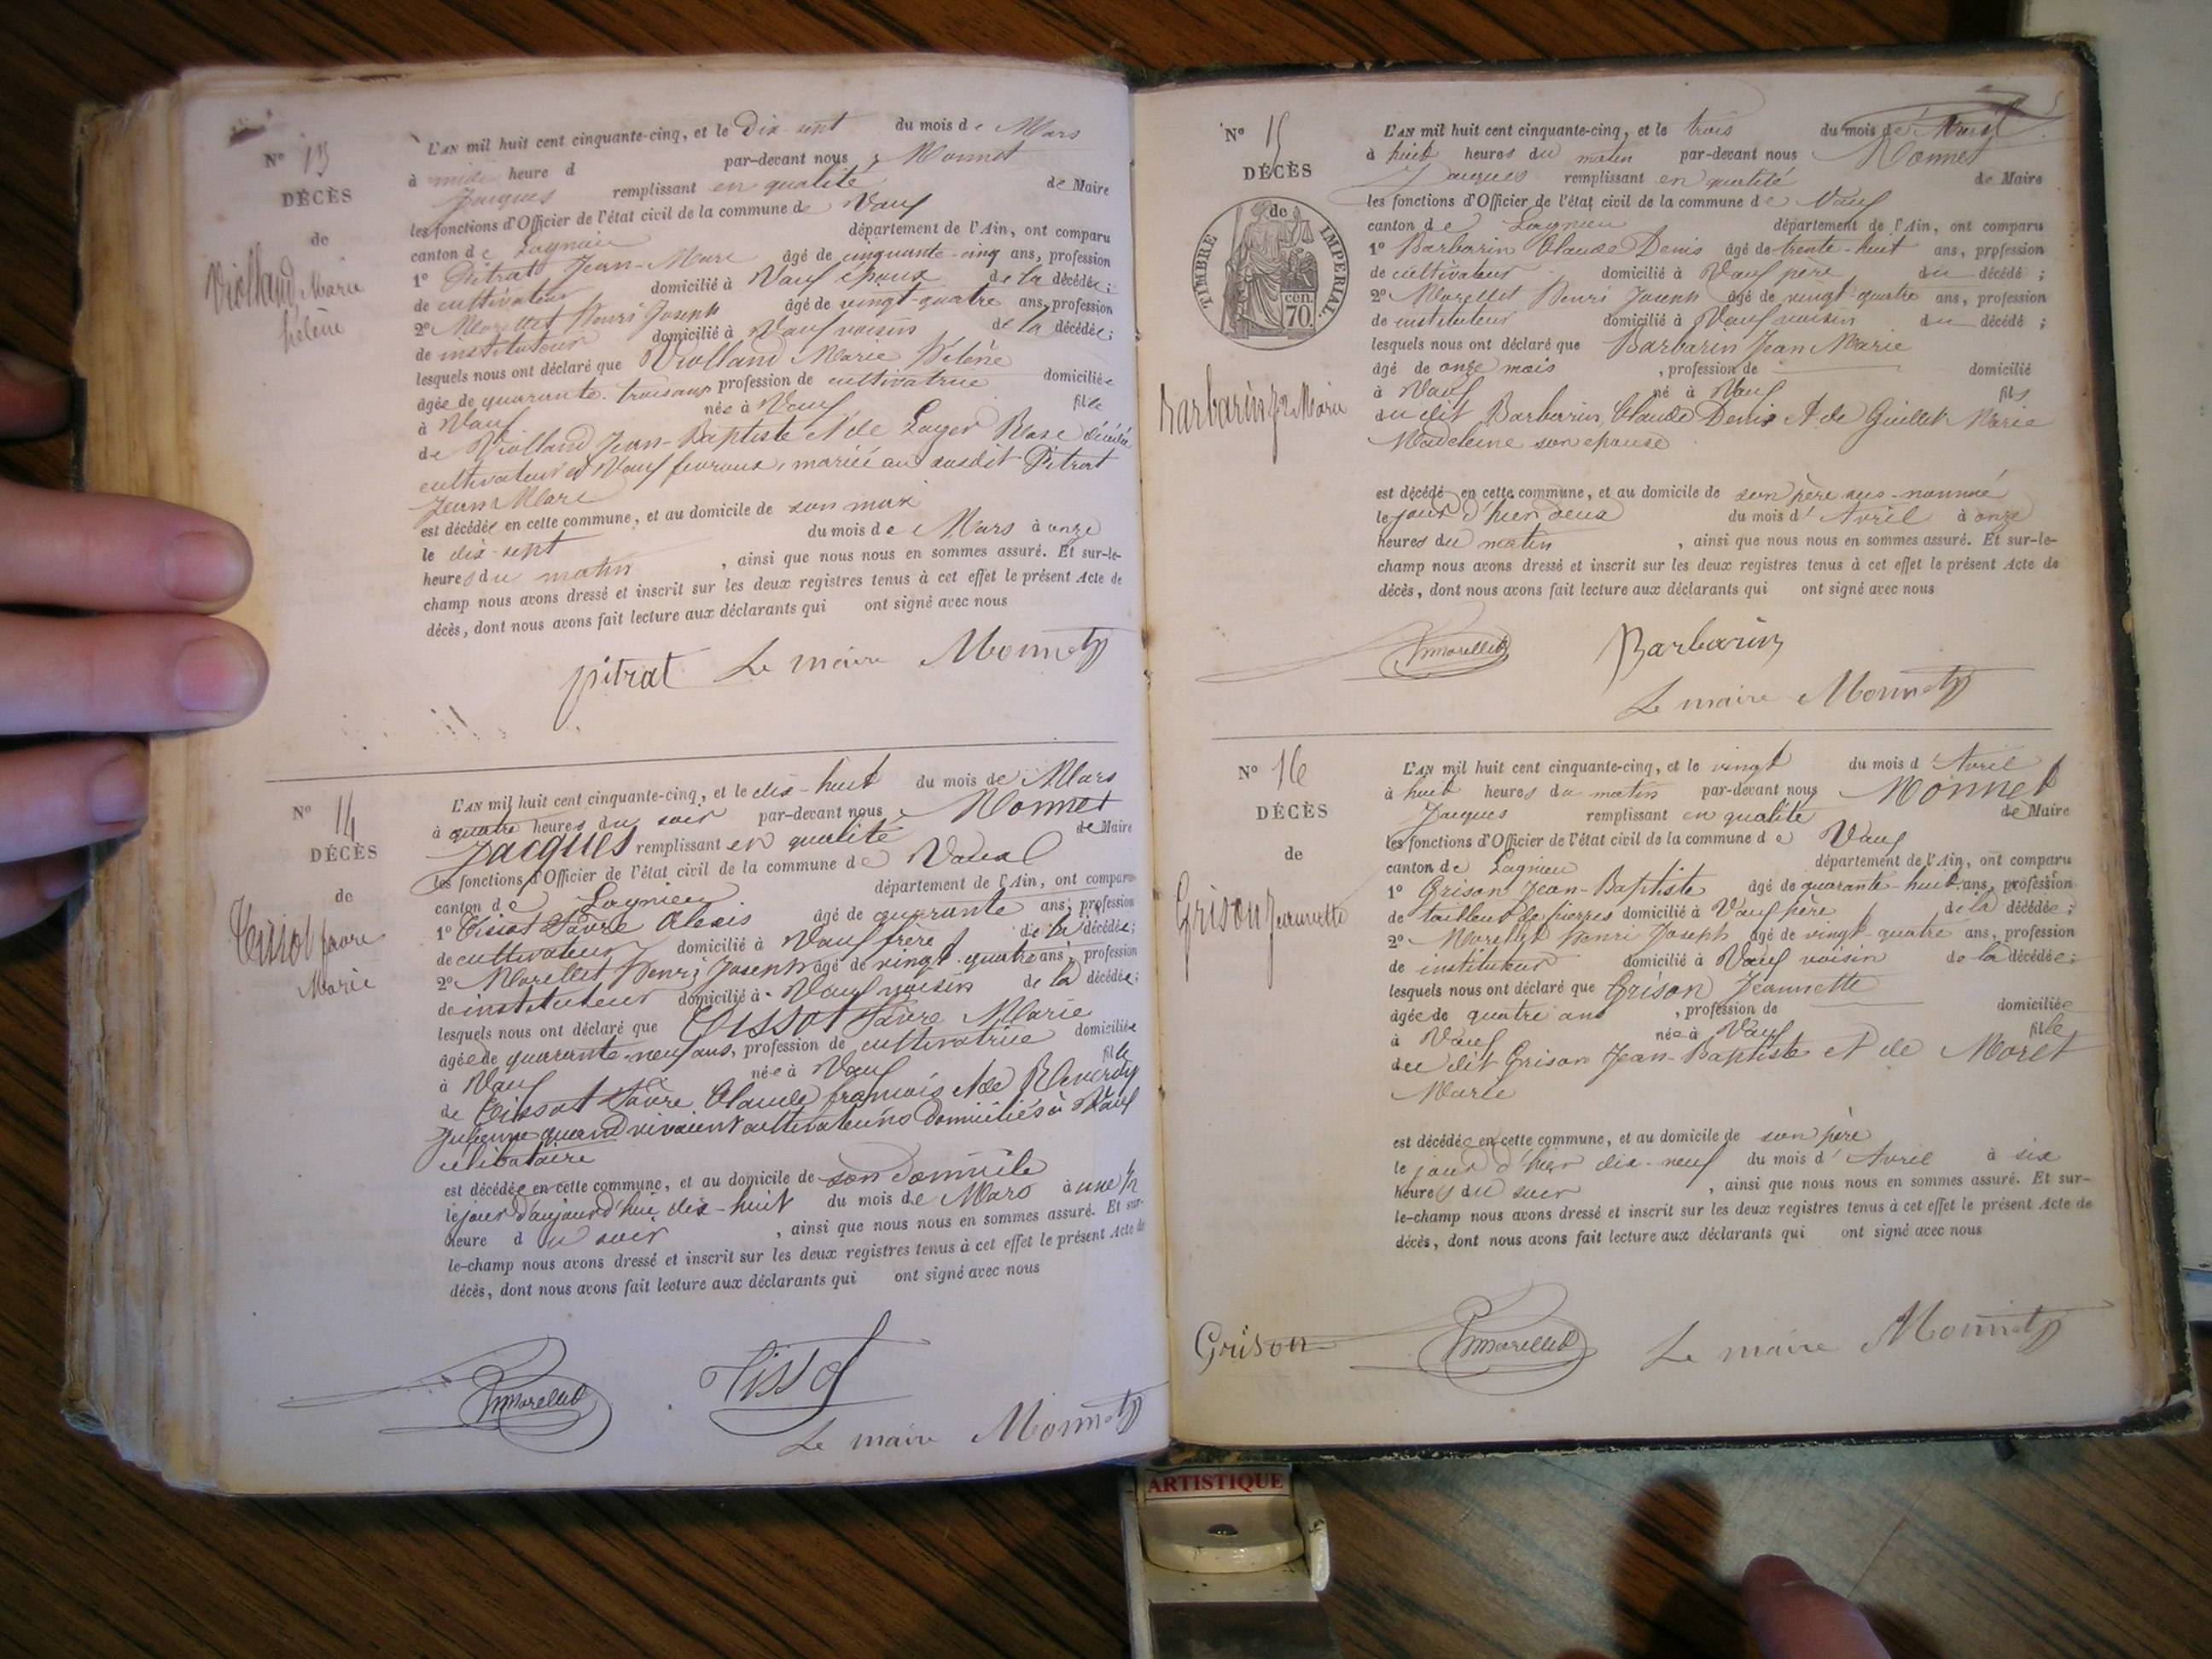 N° 13
DÉCÈS
de
Violland Marie
hélène
L'AN mil huit cent cinquante-cinq, et le Dix-sept du mois de Mars
à midi heure d par-devant nous, Monnet
Jacques remplissant en qualité de Maire
les fonctions d'Officier de l'état civil de la commune de Vaux
canton de Lagnieu département de l'Ain, ont comparu
1° Pitrat Jean-Marc âgé de cinquante-cinq ans, profession
de cultivateur domicilié à Vaux époux de la décédée;
2° Morellet Henri Joseph âgé de vingt-quatre ans, profession
de instituteur domicilié à Vaux voisin de la décédée;
lesquels nous ont déclaré que Violland Marie Hélène
âgée de quarante-trois ans profession de cultivatrice domiciliée
à Vaux née à Vaux fille
de Violland Jean-Baptiste et de Loger Rose décédés
cultivateurs à Vaux fevroux, mariée au susdit Pitrat
Jean Marc
est décédée en cette commune, et au domicile de son mari
le dix-sept du mois de Mars à onze
heures du matin, ainsi que nous nous en sommes assuré. Et sur-le-
champ nous avons dressé et inscrit sur les deux registres tenus à cet effet le présent Acte de
décès, dont nous avons fait lecture aux déclarants qui ont signé avec nous
pitrat Le maire Monnet
N° 14
DÉCÈS
de
Tissot favre
Marie
L'AN mil huit cent cinquante-cinq, et le dix-huit du mois de Mars
à quatre heures du soir par-devant nous, Monnet
Jacques remplissant en qualité de Maire
les fonctions d'Officier de l'état civil de la commune de Vaux
canton de Lagnieu département de l'Ain, ont comparu
1° Tissot Favre Alexis âgé de quarante ans, profession
de cultivateur domicilié à Vaux frère de la décédée;
2° Morellet Henri Joseph âgé de vingt-quatre ans, profession
de instituteur domicilié à Vaux voisin de la décédée;
lesquels nous ont déclaré que Tissot Favre Marie
âgée de quarante-neuf ans, profession de cultivatrice domiciliée
à Vaux née à Vaux fille
de Tissot Favre Claude françois et de
quand vivaient cultivateurs domiciliés à Vaux
célibataire
est décédée en cette commune, et au domicile de son domicile
le jour d'aujourd'hui dix-huit du mois de Mars à une ½
heure du soir, ainsi que nous nous en sommes assuré. Et sur-
le-champ nous avons dressé et inscrit sur les deux registres tenus à cet effet le présent Acte de
décès, dont nous avons fait lecture aux déclarants qui ont signé avec nous
Morellet Tissot
Le maire Monnet
N° 15
DÉCÈS
de
TIMBRE IMPERIAL
70 cen.
Barbarin Jn Marie
L'AN mil huit cent cinquante-cinq, et le trois du mois de
à huit heures du matin par-devant nous Monnet
Jacques remplissant en qualité de Maire
les fonctions d'Officier de l'état civil de la commune de Vaux
canton de Lagnieu département de l'Ain, ont comparu
1° Barbarin Claude Denis âgé de trente-huit ans, profession
de cultivateur domicilié à Vaux père du décédé;
2° Morellet Henri Joseph âgé de vingt-quatre ans, profession
de instituteur domicilié à Vaux voisin du décédé;
lesquels nous ont déclaré que Barbarin Jean Marie
âgé de onze mois, profession de domicilié
à Vaux né à Vaux fils
du dit Barbarin Claude Denis et de Guillet Marie
Madeleine son epouse
est décédé en cette commune, et au domicile de son père sus-nommé
le jour d'hier deux du mois d'Avril à onze
heures du matin, ainsi que nous nous en sommes assuré. Et sur-le-
champ nous avons dressé et inscrit sur les deux registres tenus à cet effet le présent Acte de
décès, dont nous avons fait lecture aux déclarants qui ont signé avec nous
Morellet Barbarin
Le maire Monnet
N° 16
DÉCÈS
de
Grison Jeannette
L'AN mil huit cent cinquante-cinq, et le vingt du mois d Avril
à huit heures du matin par-devant nous Monnet
Jacques remplissant en qualité de Maire
les fonctions d'Officier de l'état civil de la commune de Vaux
canton de Lagnieu département de l'Ain, ont comparu
1° Grison Jean-Baptiste âgé de quarante-huit ans, profession
de tailleur de pierres domicilié à Vaux père de la décédée;
2° Morellet Henri Joseph âgé de vingt-quatre ans, profession
de instituteur domicilié à Vaux voisin de la décédée;
lesquels nous ont déclaré que Grison Jeannette
âgée de quatre ans, profession de domiciliée
à Vaux née à Vaux fille
du dit Grison Jean-Baptiste et de Moret
Marie
est décédée en cette commune, et au domicile de son père
le jour d'hier dix-neuf du mois d'Avril à six
heures du soir, ainsi que nous nous en sommes assuré. Et sur-
le-champ nous avons dressé et inscrit sur les deux registres tenus à cet effet le présent Acte de
décès, dont nous avons fait lecture aux déclarants qui ont signé avec nous
Grison Morellet Le maire Monnet
ARTISTIQUE